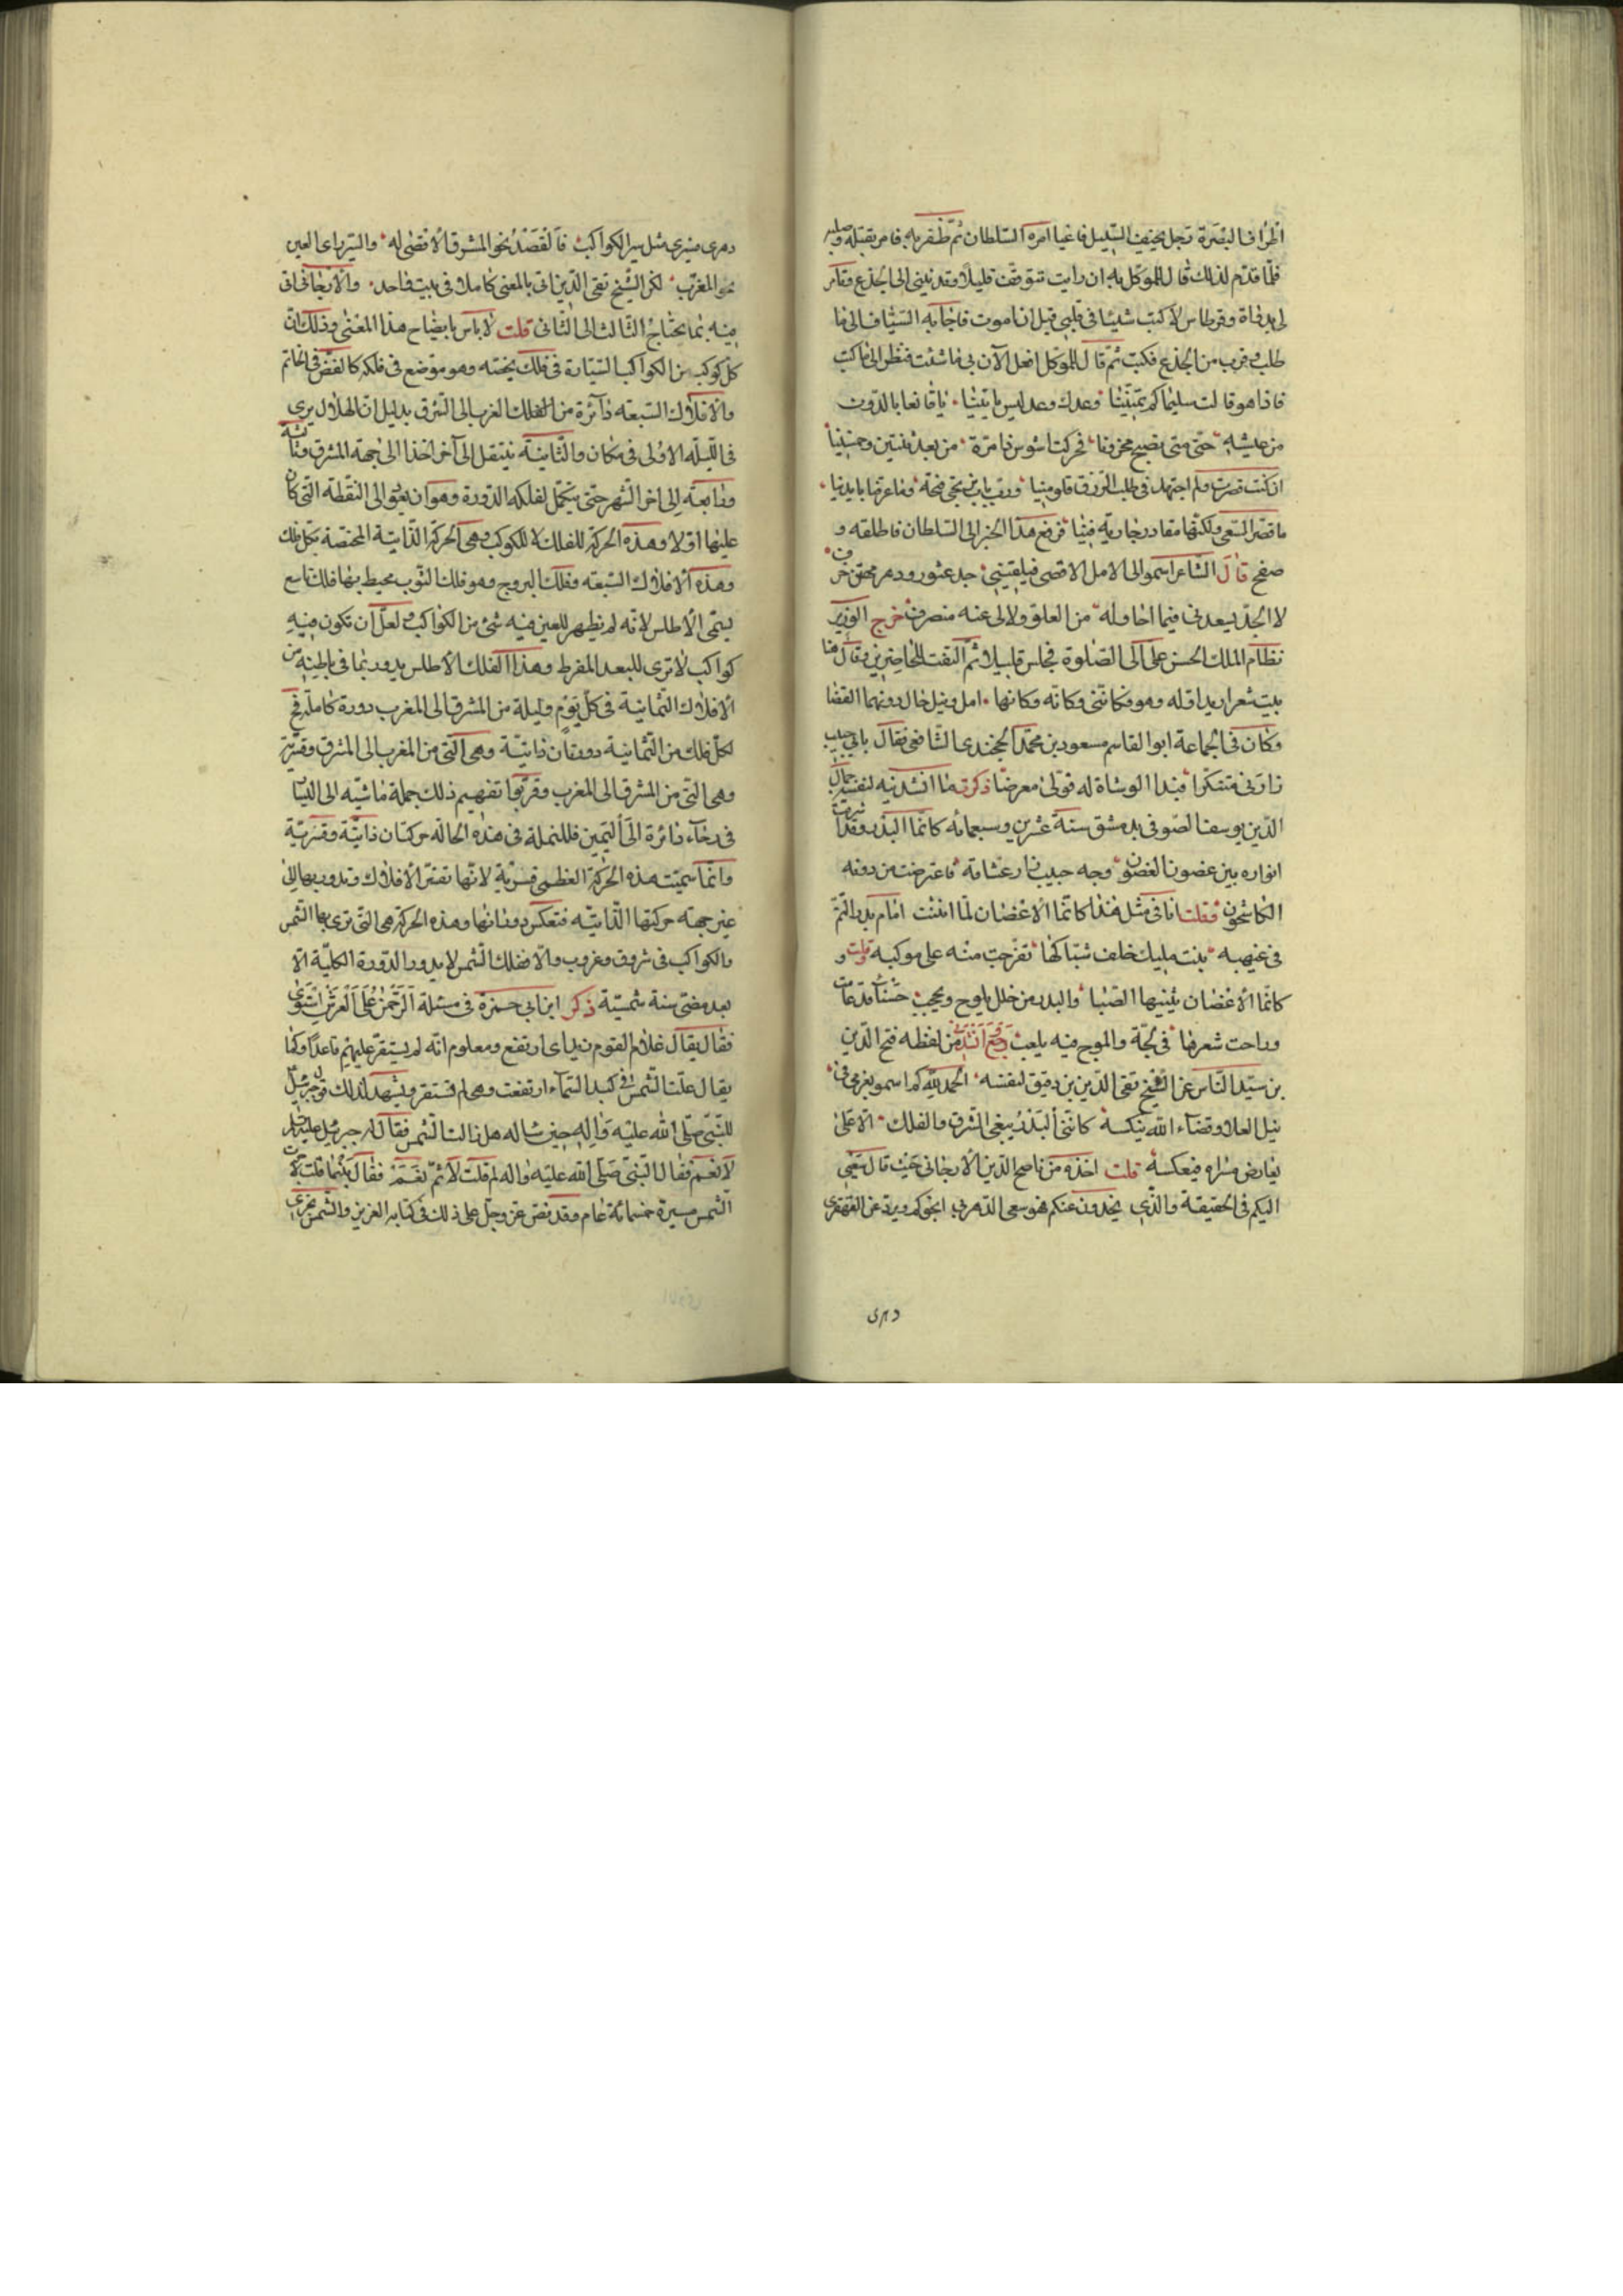 اطراف البصرة رجل يخيف السبيل فاعيا امره السلطان ثم ظفر به فامر بقتله وصلبه
فلما قدم لذلك قال للموكل به ان رايت تتوقف قليلا وقدمني الى الجذع وتامر
لي بدواة وقرطاس لاكتب شيئا في قلبي قبل ان اموت فاجابه السياف الى ما
طلب وقرب من الجذع فكتب ثم قال للموكل افعل الآن بي ما شئت فنظر الى ما كتب
فاذا هو قالت سليما كم تمنينا وعدك وعد ليس ياتينا يا قانعا بالدون
من عيشه حتى متى تصبح محزونا فحركت اشوس ذا مرة من بعد ثنتين وخمسينا
ان كنت قصرت ولم اجتهد في طلب الرزق فلومينا ورب باب نحن فتحه وما عرضا بايدينا
ما قصر السعي ولكنها مقادر جارية فينا فرفع هذا الخبر الى السلطان فاطلقه و
صفح قال الشاعر اسمو الى الامل الاقصى فيلفيني جد عثور ودهر محقق خرف
لا الجد يسعدني فيما احاوله من العلو ولا لي عنه منصرف خرج الوزير
نظام الملك الحسن على الى الصلوة فجلس قليلا ثم التفت للحاضرين وقال هنا
بيت شعر اريد اوله وهو فكانني وكانه وكانها امل ونيل حال دونهما القضا
وكان في الجماعة ابو القاسم مسعود بن محمد الخجندي الشافعي فقال بابي حبيب
زارني متنكرا فبدا الوشاة له فولى معرضا ذكرت ما انشدنيه لنفسه جمال
الدين يوسف الصوفي بدمشق سنة عشرين وسبعمائه كانما البدر وقد اشرقت
انواره بين غصون الغضون وجه حبيب زار عشاقه فاعترضت من دونه
الكاشحون فقلت انا في مثل هذا كانما الاغصان لما انثنت امام بدر التم
في غيهبه بنت مليك خلف شباكها تفرجت منه على موكبه وقلت و
كانما الاغصان يثنيها الصبا والبدر من خلل يلوح ويحجب حسناء قد عامت
وراحت شعرها في لجة والموج فيه يلعب رجع انشدني من لفظه فتح الدين
بن سيد الناس عن الشيخ تقي الدين بن دقيق لنفسه الحمد لله كم اسمو بعزمي في
نيل العلا وقضاء الله ينكسه كانني البدر يبغي الشرق والفلك الاعلى
يعارض مسراه فيعكسه قلت اخذه من ناصح الدين الارجاني حيث قال سعيي
اليكم في الحقيقة والذي يجدون عنكم هو سعي الدهر بي انحوكم ويرد عن القهقرى
دهري
دهري فسيري مثل سير الكواكب فالقصد نحو المشرق الاقصى له والسير راي العين
نحو المغرب لكن الشيخ تقي الدين اتى بالمعنى كاملا في بيت واحد والارجاني اتى
فيه بما يحتاج الثالث الى الثاني قلت لا باس بايضاح هذا المعنى وذلك ان
كل كوكب من الكواكب السيارة في فلك يخصه وهو موضع في فلكه كالفص في الخاتم
والافلاك السبعة دآئرة من الفلك الغرب الى الشرق بدليل ان الهلال يرى
في الليلة الاولى في مكان والثانية ينتقل الى آخر اخذا الى جهة المشرق وثالثة
ورابعة الى اخر الشهر حتى يتكمل لفلكه الدورة وهو ان يعود الى النقطة التي كان
عليها اولا وهذه الحركة للفلك لا للكوكب وهي الحركة الذاتية المختصة بكل فلك
وهذه الافلاك السبعة وفلك البروج وهو فلك الثوب محيط بها فلك تاسع
يسمى الاطلس لانه لم يظهر للعين فيه شئ من الكواكب ولعل ان تكون فيه
كواكب لا ترى للبعد المفرط وهذا الفلك الاطلس يدور بما في باطنه من
الافلاك الثمانية في كل يوم وليلة من المشرق الى المغرب دورة كاملة فح
لكل فلك من الثمانية دورتان ذاتية وهي التي من المغرب الى المشرق وقسرية
وهي التي من المشرق الى المغرب وقربوا تفهيم ذلك بجملة ماشية الى اليسار
في رحاء دائرة الى اليمين فللنملة في هذه الحالة حركتان ذاتية وقسرية
وانما سميت هذه الحركة العظمى قسرية لانها تقسر الافلاك وتدور بها الى
غير جهة حركتها الذاتية فتعكس دورانها وهذه الحركة هي التي ترى بها الشمس
والكواكب في شروق وغروب والا ففلك الشمس لا يدور الدورة الكلية الا
بعد مضي سنة شمسية ذكر ابن ابي حمزة في مسئلة الرحمن على العرش استوى
فقال يقال غلام القوم زيد اي ارتفع ومعلوم انه لم يستقر عليهم قاعدا وكما
يقال علت الشمس في كبد السماء ارتفعت وهي لم تستقر ويشهد لذلك قول جبرئيل
للنبي صلى الله عليه وآله حين ساله هل زالت الشمس فقال له جبرئيل عليه السلم
لا نعم فقال النبي صلى الله عليه واله لم قلت لا ثم نعم فقال بينما قلت لا جرت
الشمس مسيرة خمسمائة عام وقد نص عز وجل على ذلك في كتابه العزيز والشمس تجري